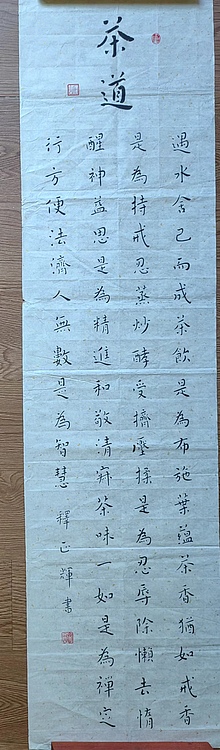 茶道
遇水舍己而成茶飲是為布施葉蘊茶香猶如戒香
是為持戒忍蒸炒酵受擠壓揉是為忍辱除懶去惰
醒神益思是為精進和敬清寂茶味一如是為禪定
行方便法濟人無數是為智慧
釋正輝書